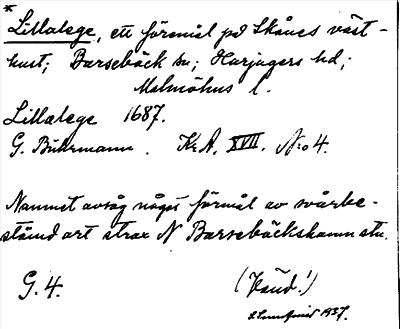 *
Lillalege, ett föremål på Skånes väst-
kust; Barsebäck sn; Harjagers hd;
Malmöhus l.
Lillalege 1687.
G. Buhrmann. Kr.A. XVII. No 4.
Namnet avsåg något förmål av svårbe-
stämd art strax N Barsebäckshamn
G. 4.
1937.